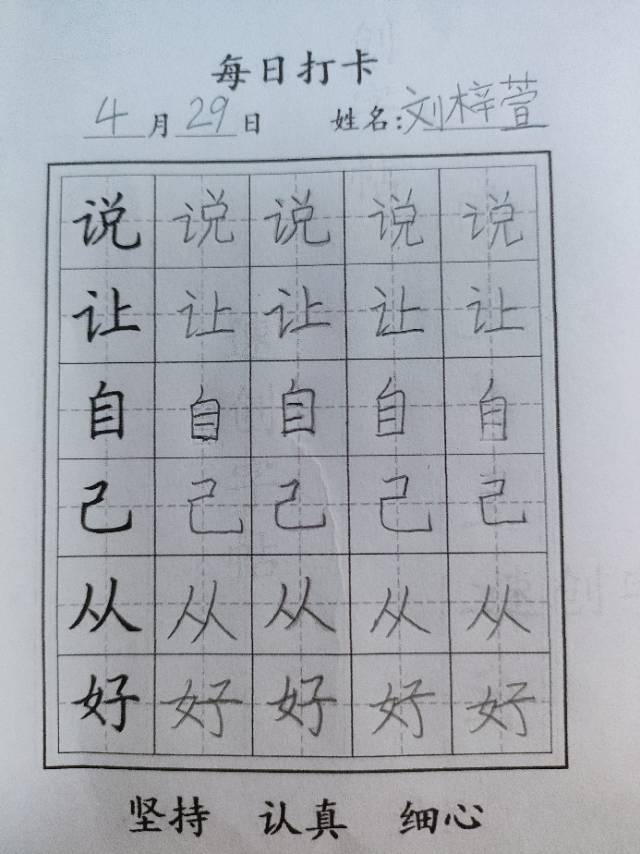 每日打卡
4月29日 姓名:刘梓萱
说说说说说
让让让让让
自自自自自
己己己己己
从从从从从
好好好好好
坚持 认真 细心